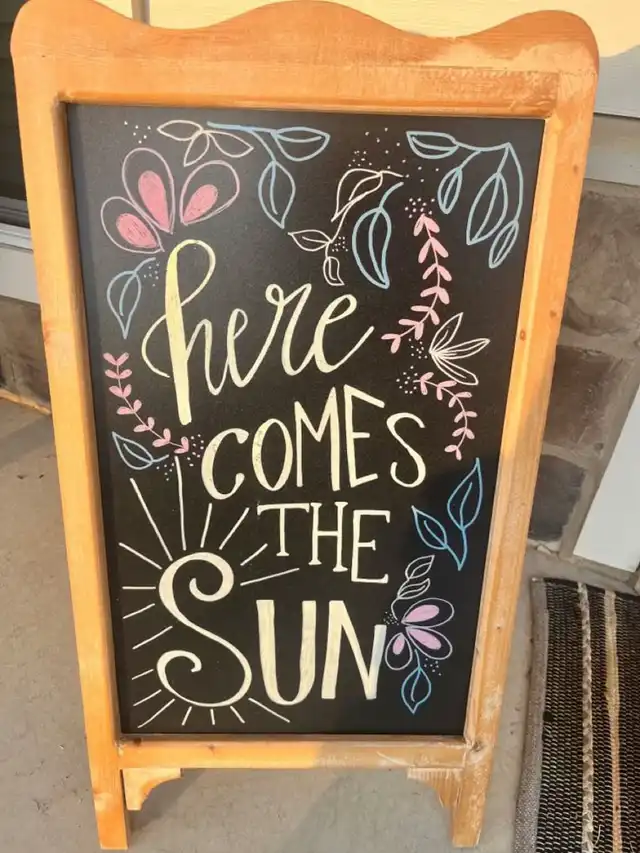 here
COMES
THE
SUN